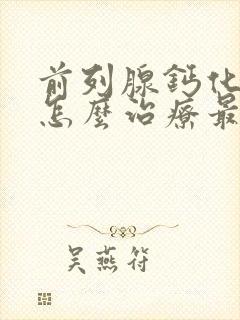 前列腺鈣化
怎麼治療最
吴燕符